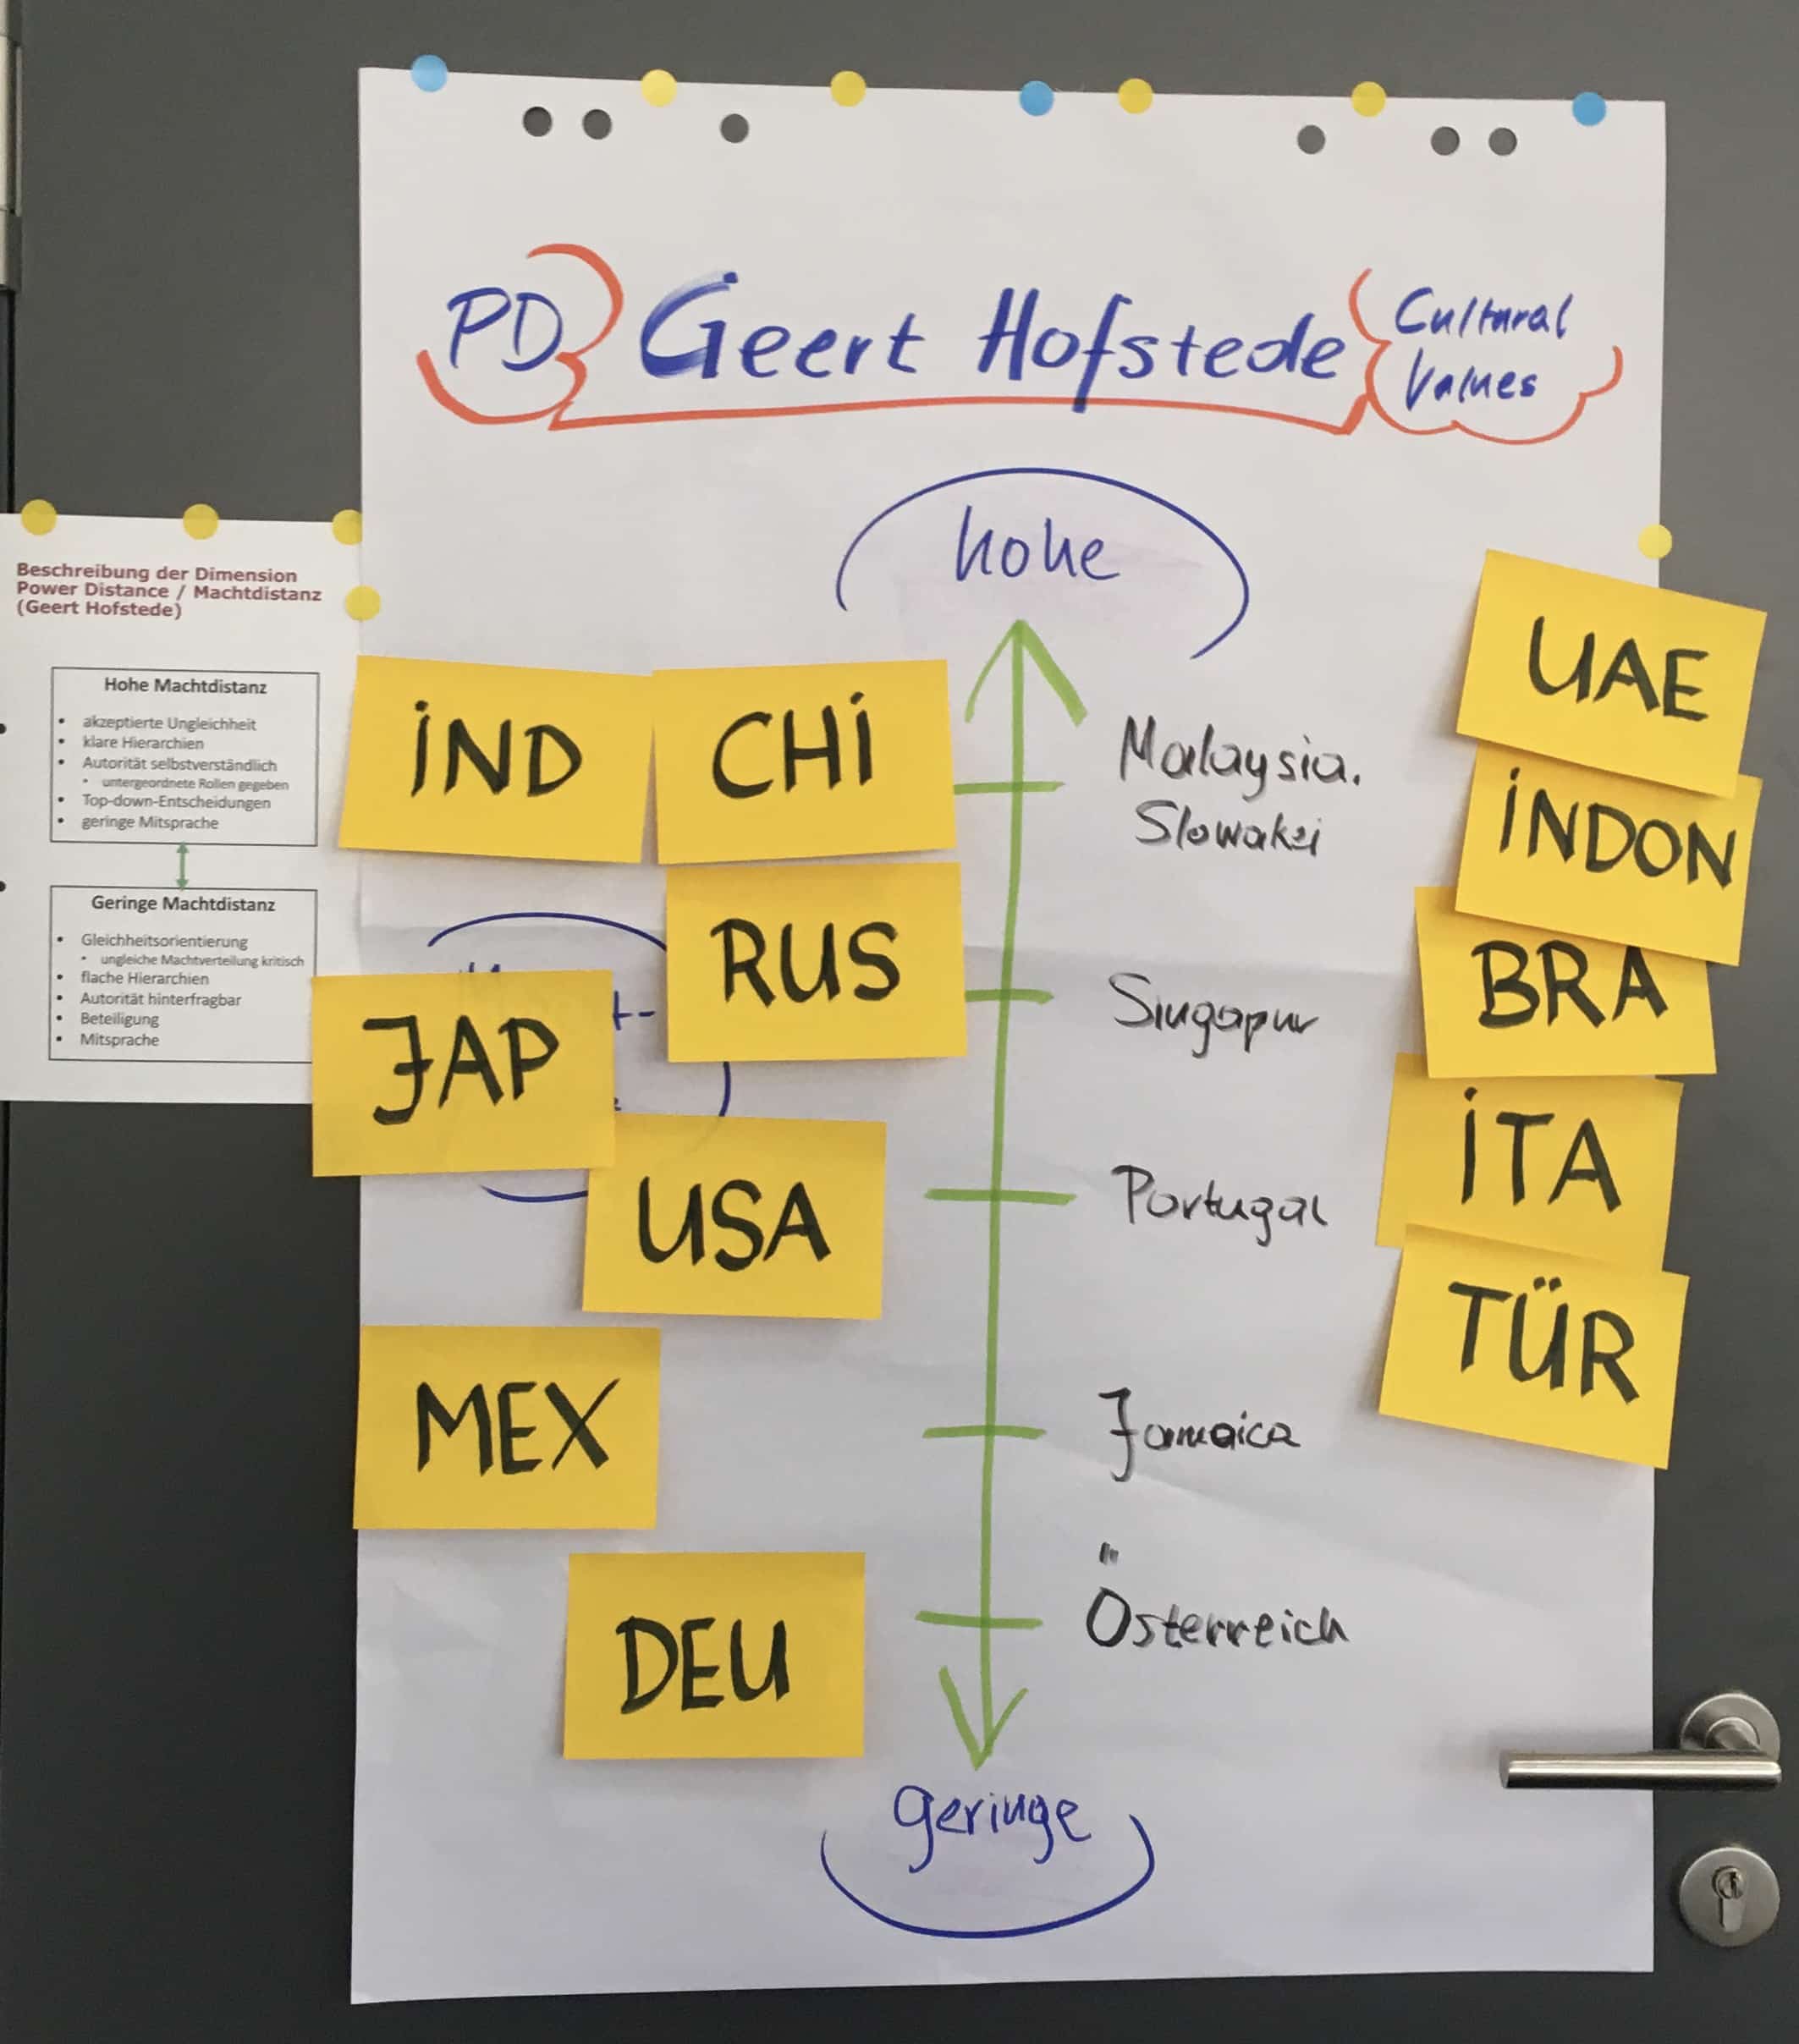 PD
Geert Hofstede
Cultural
Values
hohe
Beschreibung der Dimension
Power Distance / Machtdistanz
(Geert Hofstede)
Hohe Machtdistanz
• akzeptierte Ungleichheit
• klare Hierarchien
• Autorität selbstverständlich
• untergeordnete Rollen gegeben
• Top-down-Entscheidungen
• geringe Mitsprache
Geringe Machtdistanz
• Gleichheitsorientierung
• ungleiche Machtverteilung kritisch
• flache Hierarchien
• Autorität hinterfragbar
• Beteiligung
• Mitsprache
IND
CHI
RUS
JAP
USA
MEX
DEU
Malaysia.
Slowakei
Singapur
Portugal
Jamaica
Österreich
UAE
INDON
BRA
ITA
TÜR
geringe